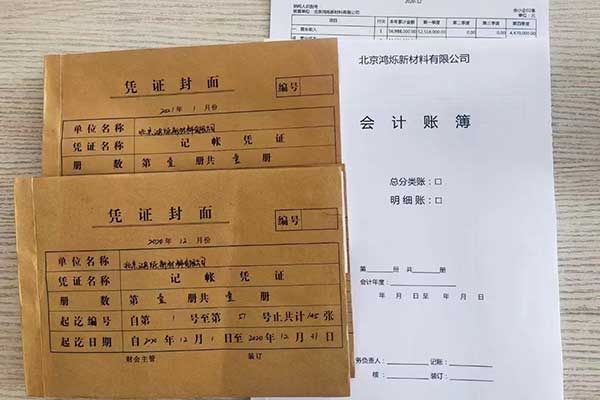 凭证封面
编号
2021年 1 月份
单位名称 北京鸿烁新材料有限公司
凭证名称 记帐凭证
册数 第壹册共壹册
凭证封面
编号
2020年 12 月份
单位名称 北京鸿烁新材料有限公司
凭证名称 记帐凭证
册数 第壹册共壹册
起讫编号 自第 1 号至第 57 号止共计 张
起讫日期 自2020年12月1日至2020年12月31日
财会主管 装订
2020-12
纳税人识别号
北京鸿烁新材料有限公司
会小企02表
单位:元
项目 行次 本年累计金额 第一季度 第二季度 第三季度 第四季度
1 0.00 0.00
北京鸿烁新材料有限公司
会计账簿
总分类账:□
明细账:□
第 册 共 册
会计年度:
年 月 日 至 年 月 日
务负责人: 记账:
核: 装订: